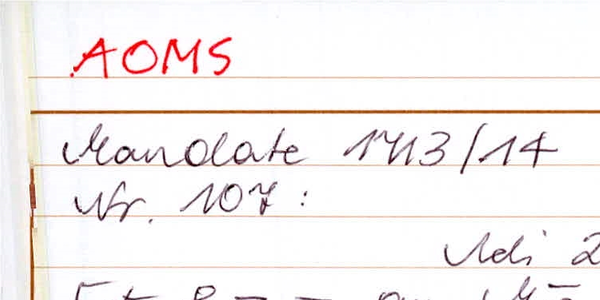 AOMS
Mandate 1713/14
Nr. 107:
Adi 2